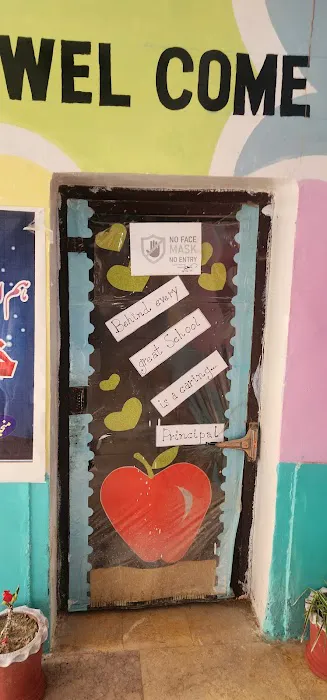 WEL COME
NO FACE
MASK
NO ENTRY
Behind every
great School
is a caring
Principal